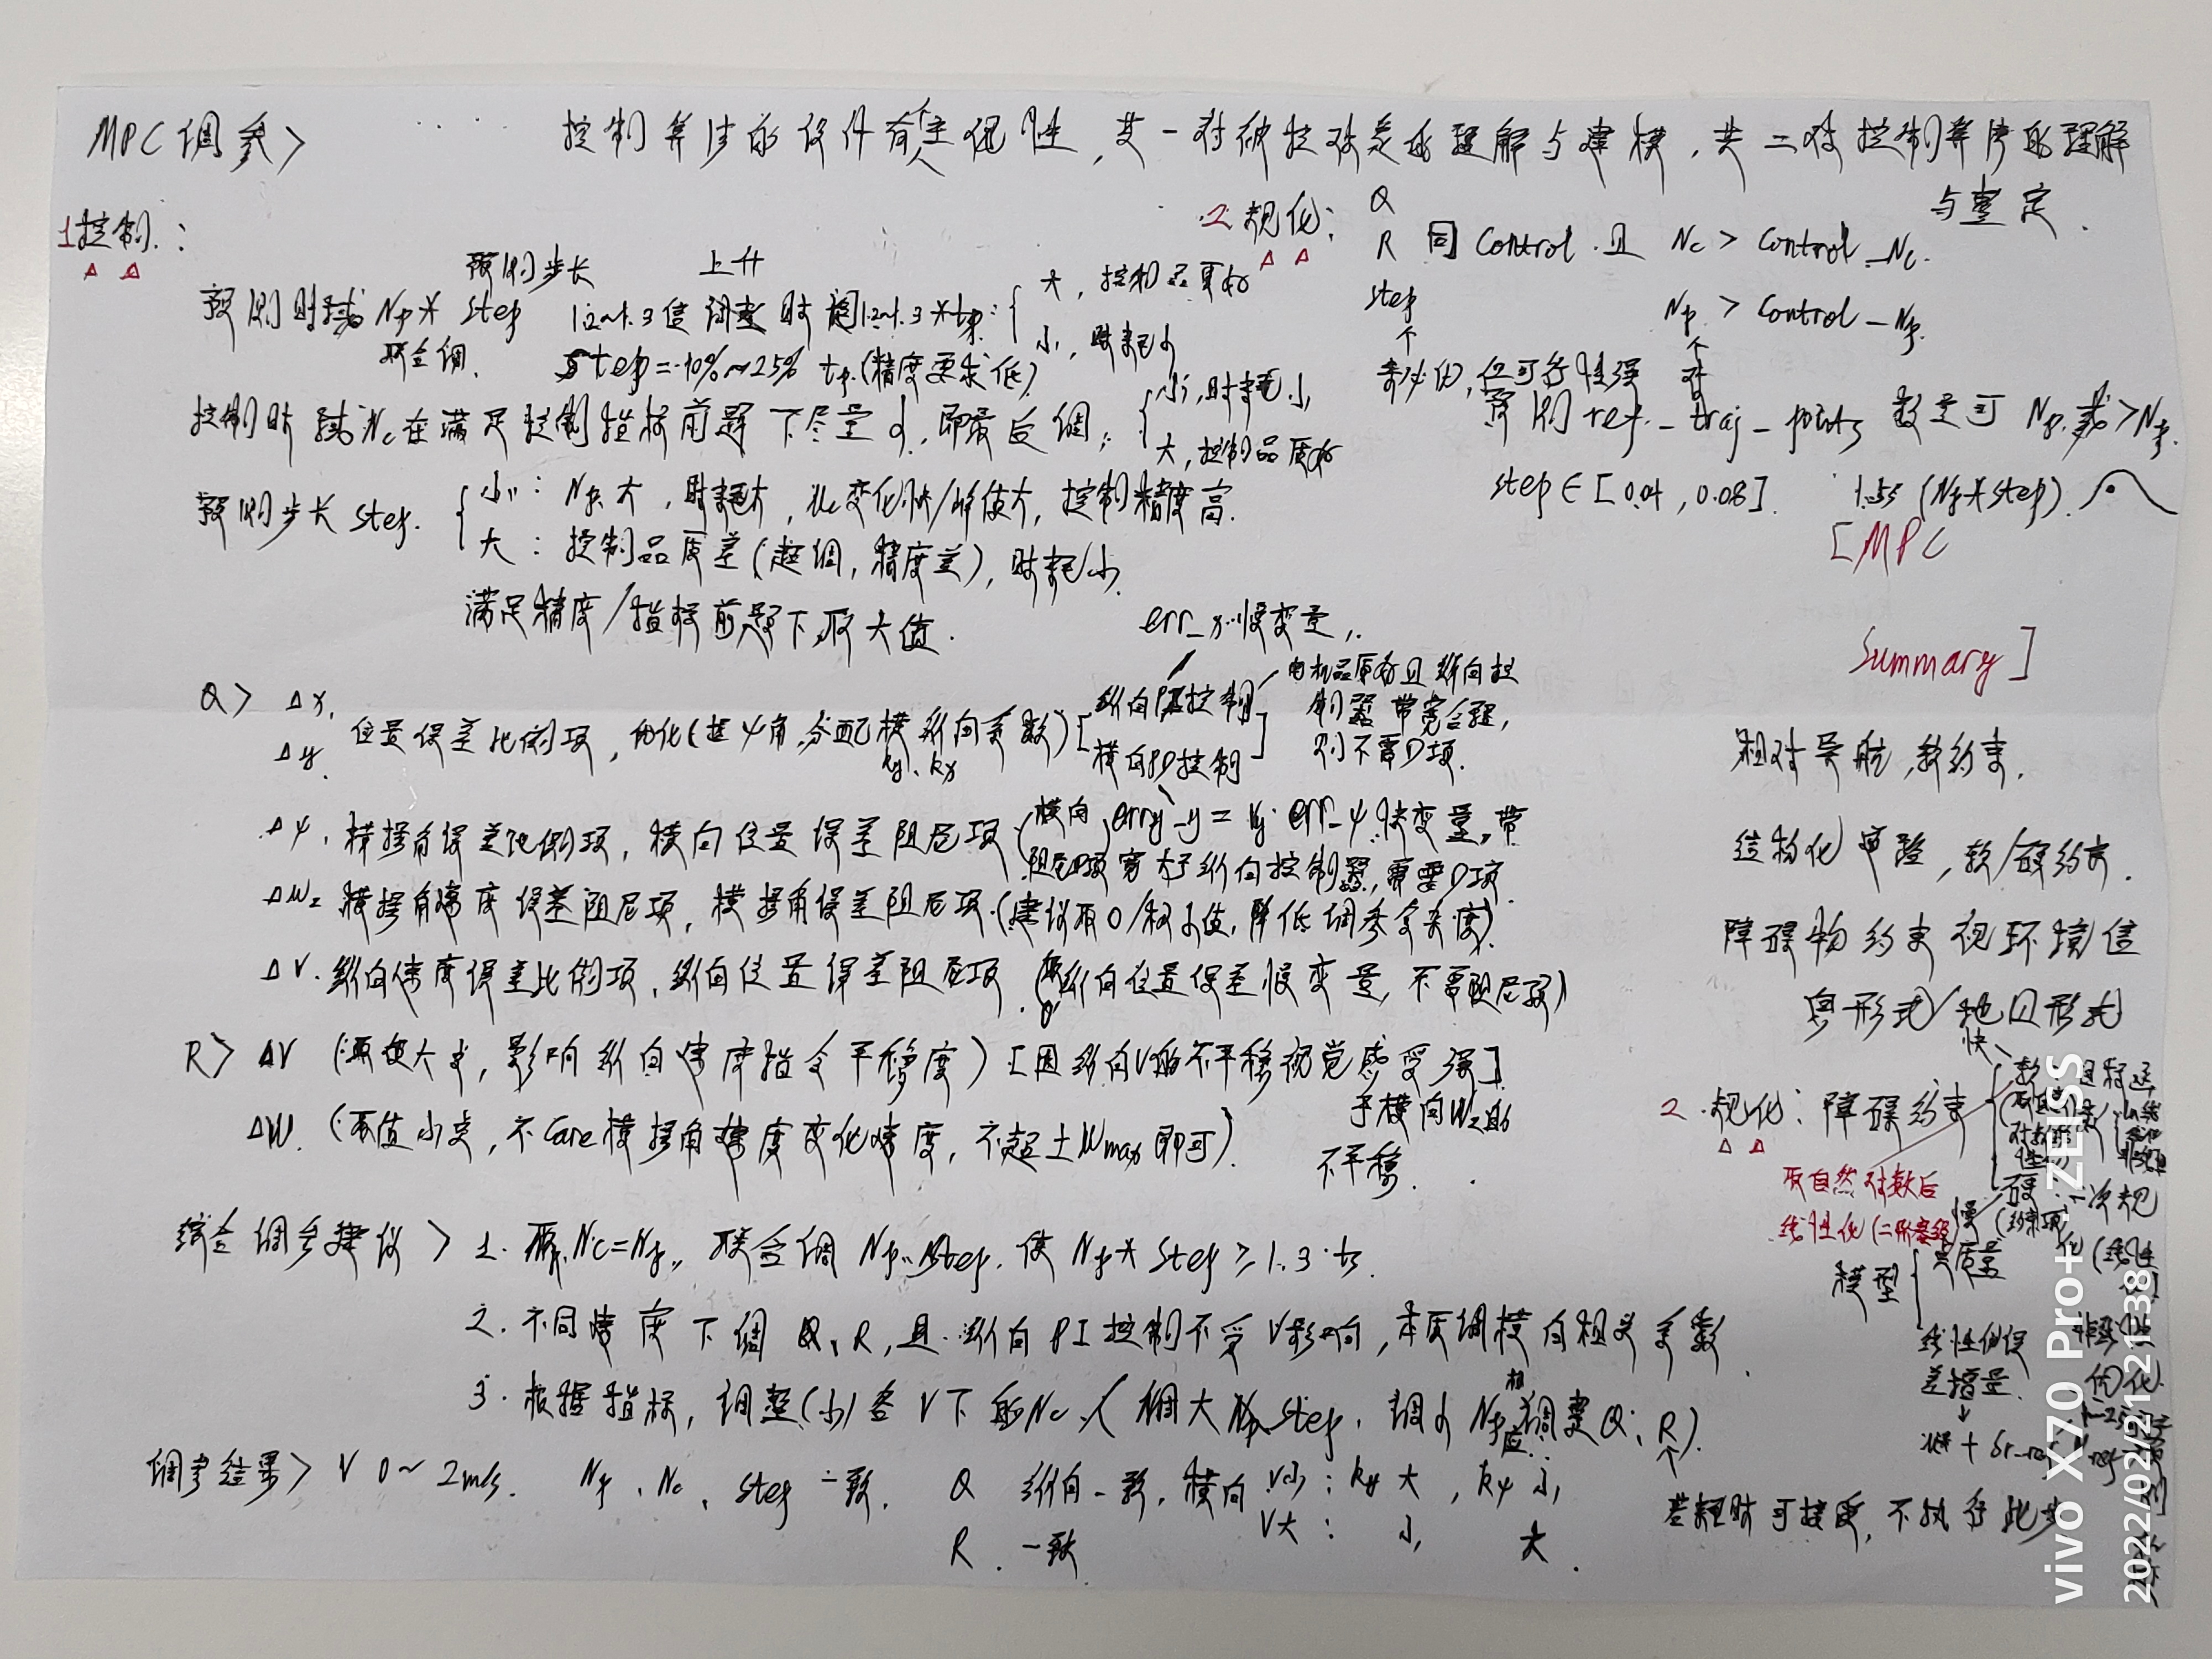 MPC调参>
控制算法的设计有个主观性,其一对被控对象的理解与建模,其二对控制算法的理解与整定.
1控制:
预测步长 上升
预测时域 Np* step 1.2~1.3倍调整时间1.2~1.3*tp:
联合调.
step=10%~25% tp.(精度要求低)
大,控制品更好
小,时耗小
控制时域Nc在满足控制指标前题下尽量小,即最后调;
小,时耗小
大,控制品质好
预测步长 step.
小: Np大,时耗大,uc变化快/峰值大,控制精度高.
大:控制品质差(超调,精度差),时耗小.
满足精度/指标前题下,取大值.
Q> Δx,
Δy.
位置误差比例项,优化(按ψ角,分配横纵向系数)
ky、kx
纵向控制
横向PD控制
err_x.慢变量,
电机品质好且纵向控制器带宽合理,则不需D项.
Δψ.横摆角误差比例项,横向位置误差阻尼项
(横向阻尼项)
err_ψ.快变量,带宽大于纵向控制器,需要D项
ΔWz 横摆角速度误差阻尼项,横摆角误差阻尼项.(建议取0/极小值,降低调参复杂度).
ΔV.纵向速度误差比例项,纵向位置误差阻尼项(纵向位置误差慢变量,不需阻尼项)
R> ΔV (取值大点,影响纵向速度指令平稳度)[因纵向V的不平稳视觉感受强]
于横向Wz的不平稳.
ΔW. (取值小点,不Care横摆角速度变化速度,不超±Wmax即可).
综合调参建议> 1. 取Nc=Np, 联合调Np、step.使Np*step≥1.3·ts.
2. 不同速度下调Q、R,且纵向PI控制不受V影响,本质调横向相关系数.
3. 根据指标,调整(小)各V下的Nc.(调大step,调小Np相应调整Q、R).
若耗时可接受,不执行此步
调参结果> V 0~2m/s. Np、Nc、step一致. Q 纵向一致,横向 V小:ky大,kψ小,
V大: 小, 大.
R.一致
2规化:
Q
R 同Control.且 Nc > Control_Nc.
step
Np > Control_Np.
预测ref_traj_points数量可Np.或>Np.
step∈[0.04,0.08]. 1.5s (Np*step).
[MPC
Summary]
相对导航,软约束.
结构化审验,软/硬约束.
障碍物约束视环境信
息形式/地图形式
2.规化:障碍约束
快
软
硬
慢
取自然对数后
线性化(二阶泰勒)
模型
点质量
线性化误
差增量.
vivo X70 Pro+ ZEISS
2022/02/21 21:38